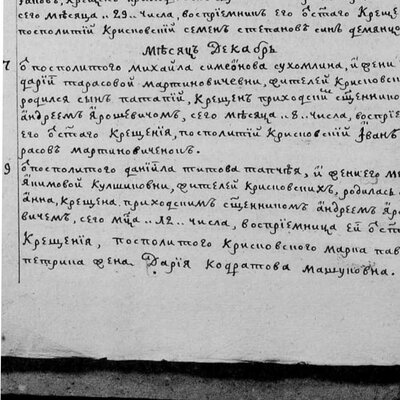 сего мѣсяца „29„ числа, воспрiемникъ его ѿ стаго Креще
посполитiй Крисковскiй семенъ степановъ синъ деманцо
Мѣсяцъ Декабрь
7 ѿ посполитого михайла симеѡнова сухомлина, и жени
дарiи тарасовой мартиновичевни, жителей Крисковски
родился сынъ патапiй, Крещенъ приходскiм сщенником
андреемъ Ярошевичомъ, сего мѣсяца „8„ числа, воспрiе
его ѿ стаго Крещенiя, посполитiй Крисковскiй Iванъ
расовъ мартиновиченокъ.
9 ѿ посполитого данiила титова тапчѣя, и жени его ме
Якимовой Кулшиковни, жителей Крисковскихъ, родилась
анна, Крещена приходскимъ сщенникомъ андреемъ Яро
вичемъ, сего мца „12„ числа, воспрiемница ей ѿ ст
Крещенiя, посполитого Крисковского марка пав
петрика жена Дарiя Кодратова машуковна.